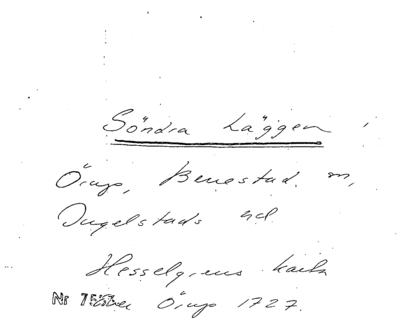 Söndra Läggen
Öinge, Benestad. m,
Ingelstads hd.
Hesselgrens karta
Nr 755 över Öinge 1727.